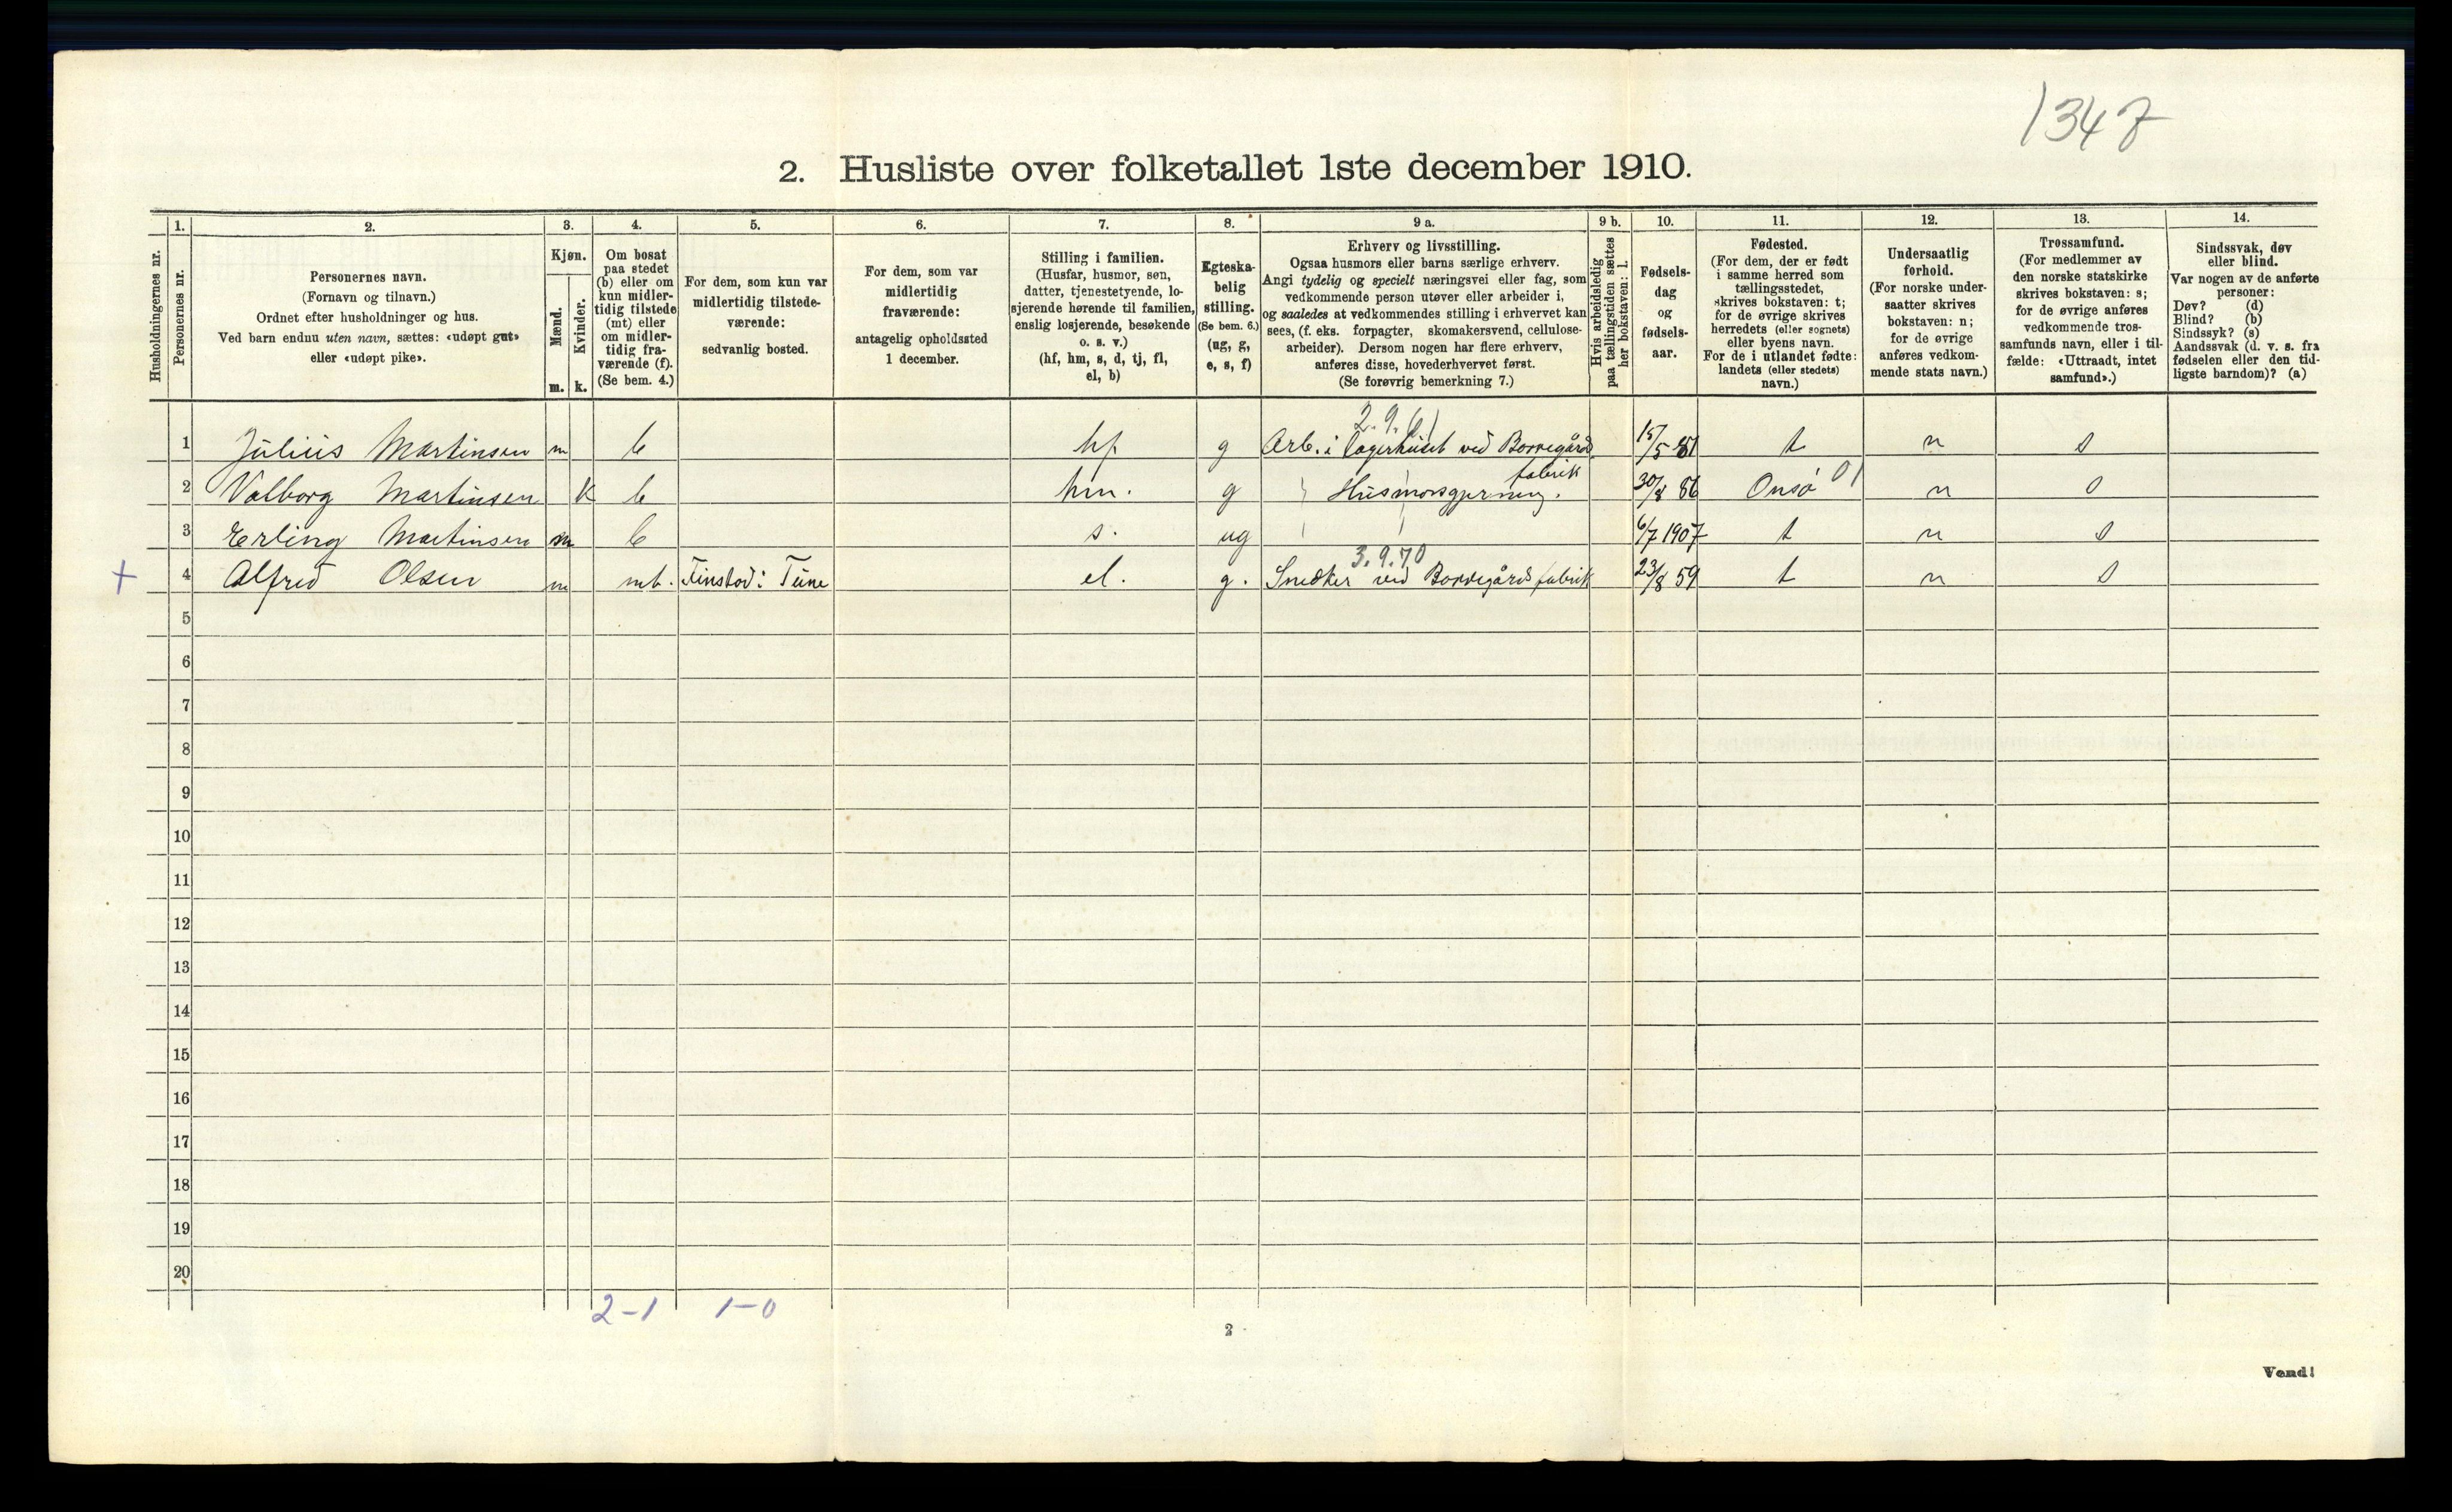 1347
2. Husliste over folketallet 1ste december 1910.
Husholdningernes nr.
1.
Personernes nr.
2.
Personernes navn.
(Fornavn og tilnavn.)
Ordnet efter husholdninger og hus.
Ved barn endnu uten navn, sættes: «udøpt gut»
eller «udøpt pike».
3.
Kjøn.
Mænd.
m.
Kvinder.
k.
4.
Om bosat
paa stedet
(b) eller om
kun midler-
tidig tilstede
(mt) eller
om midler-
tidig fra-
værende (f).
(Se bem. 4.)
5.
For dem, som kun var
midlertidig tilstede-
værende:
sedvanlig bosted.
6.
For dem, som var
midlertidig
fraværende:
antagelig opholdssted
1 december.
7.
Stilling i familien.
(Husfar, husmor, søn,
datter, tjenestetyende, lo-
sjerende hørende til familien,
enslig losjerende, besøkende
o. s. v.)
(hf, hm, s, d, tj, fl,
el, b)
8.
Egteska-
belig
stilling.
(Se bem. 6.)
(ug, g,
e, s, f)
9 a.
Erhverv og livsstilling.
Ogsaa husmors eller barns særlige erhverv.
Angi tydelig og specielt næringsvei eller fag, som
vedkommende person utøver eller arbeider i,
og saaledes at vedkommendes stilling i erhvervet kan
sees, (f. eks. forpagter, skomakersvend, cellulose-
arbeider). Dersom nogen har flere erhverv,
anføres disse, hovederhvervet først.
(Se forøvrig bemerkning 7.)
9 b.
Hvis arbeidsledig
paa tællingstiden sættes
her bokstaven: l.
10.
Fødsels-
dag
og
fødsels-
aar.
11.
Fødested.
(For dem, der er født
i samme herred som
tællingsstedet,
skrives bokstaven: t;
for de øvrige skrives
herredets (eller sognets)
eller byens navn.
For de i utlandet fødte:
landets (eller stedets)
navn.)
12.
Undersaatlig
forhold.
(For norske under-
saatter skrives
bokstaven: n;
for de øvrige
anføres vedkom-
mende stats navn.)
13.
Trossamfund.
(For medlemmer av
den norske statskirke
skrives bokstaven: s;
for de øvrige anføres
vedkommende tros-
samfunds navn, eller i til-
fælde: «Uttraadt, intet
samfund».)
14.
Sindssvak, døv
eller blind.
Var nogen av de anførte
personer:
Døv? (d)
Blind? (b)
Sindssyk? (s)
Aandssvak (d. v. s. fra
fødselen eller den tid-
ligste barndom)? (a)
2.9.61
1 Julius Martinsen m b hf g Arb. i lagerhuset ved Borregårds 15/5 81 t n s
fabrik
2 Valborg Martinsen k b hm. g Husmorsgjerning. 30/8 86 Onsø 01 n s
3 Erling Martinsen m b s. ug 6/7 1907 t n s
3.9.70
+ 4 Alfred Olsen m mt. Finstad: Tune el. g. Snedker ved Borregårds fabrik 23/8 59 t n s
5
6
7
8
9
10
11
12
13
14
15
16
17
18
19
20
2-1 1-0
2
Vend!